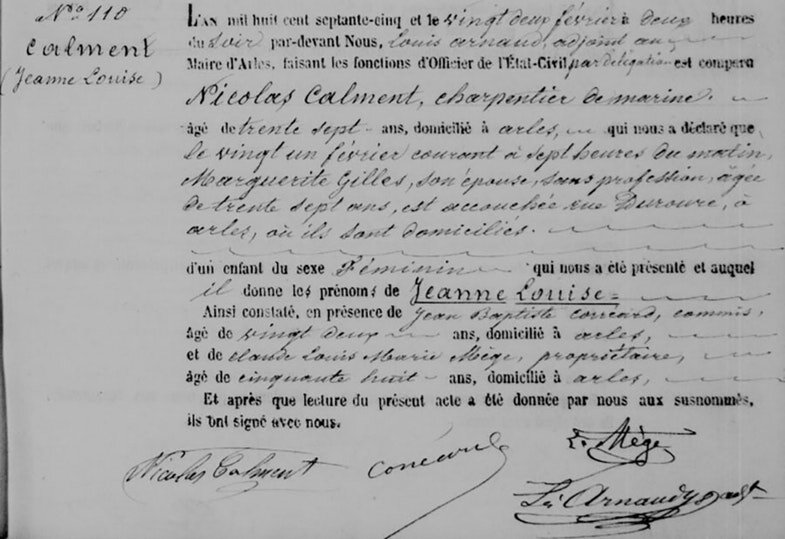 N° 110
Calment
(Jeanne Louise)
L'AN mil huit cent septante-cinq et le vingt deux février à deux heures
du Soir par-devant Nous, Louis Arnaud, adjoint au
Maire d'Arles, faisant les fonctions d'Officier de l'État-Civil, par délégation est comparu
Nicolas Calment, charpentier de marine.
âgé de trente sept ans, domicilié à arles, qui nous a déclaré que
le vingt un février courant à sept heures du matin,
Marguerite Gilles, son épouse, sans profession, âgée
de trente sept ans, est accouchée rue Duroure, à
arles, où ils sont domiciliés.
d'un enfant du sexe Féminin qui nous a été présenté et auquel
il donne les prénoms de Jeanne Louise =
Ainsi constaté, en présence de Jean Baptiste Conéard, commis,
âgé de vingt deux ans, domicilié à arles,
et de claude Louis Marie Mège, propriétaire,
âgé de cinquante huit ans, domicilié à arles,
Et après que lecture du présent acte a été donnée par nous aux susnommés,
ils ont signé avec nous.
L. Mège
Nicolas Calment Conéard
Ls Arnaud adt